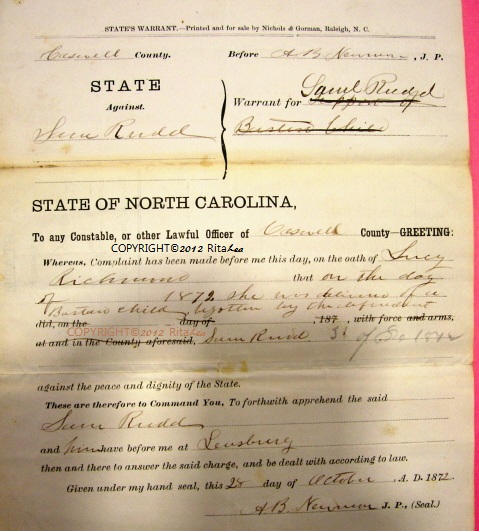 STATE'S WARRANT.—Printed and for sale by Nichols & Gorman, Raleigh, N. C.
Caswell County. Before A B Newman, J. P.
STATE
Against.
Sam Rudd
Warrant for Saml Rudd
Support of
Bastard Child
STATE OF NORTH CAROLINA,
To any Constable, or other Lawful Officer of Caswell County—GREETING:
COPYRIGHT©2012 RitaLea
Whereas, Complaint has been made before me this day, on the oath of Lucy
Richmond that on the day
of 1872 she was delivered of a
Bastard child, begotten by the
did, on the day of 187 , with force and arms,
COPYRIGHT©2012 RitaLea
at and in the County aforesaid, Sam Rudd
against the peace and dignity of the State.
These are therefore to Command You, To forthwith apprehend the said
Sam Rudd
and him have before me at Leasburg
then and there to answer the said charge, and be dealt with according to law.
Given under my hand and seal, this 28 day of October A. D. 1872.
A B Newman J. P., (Seal.)